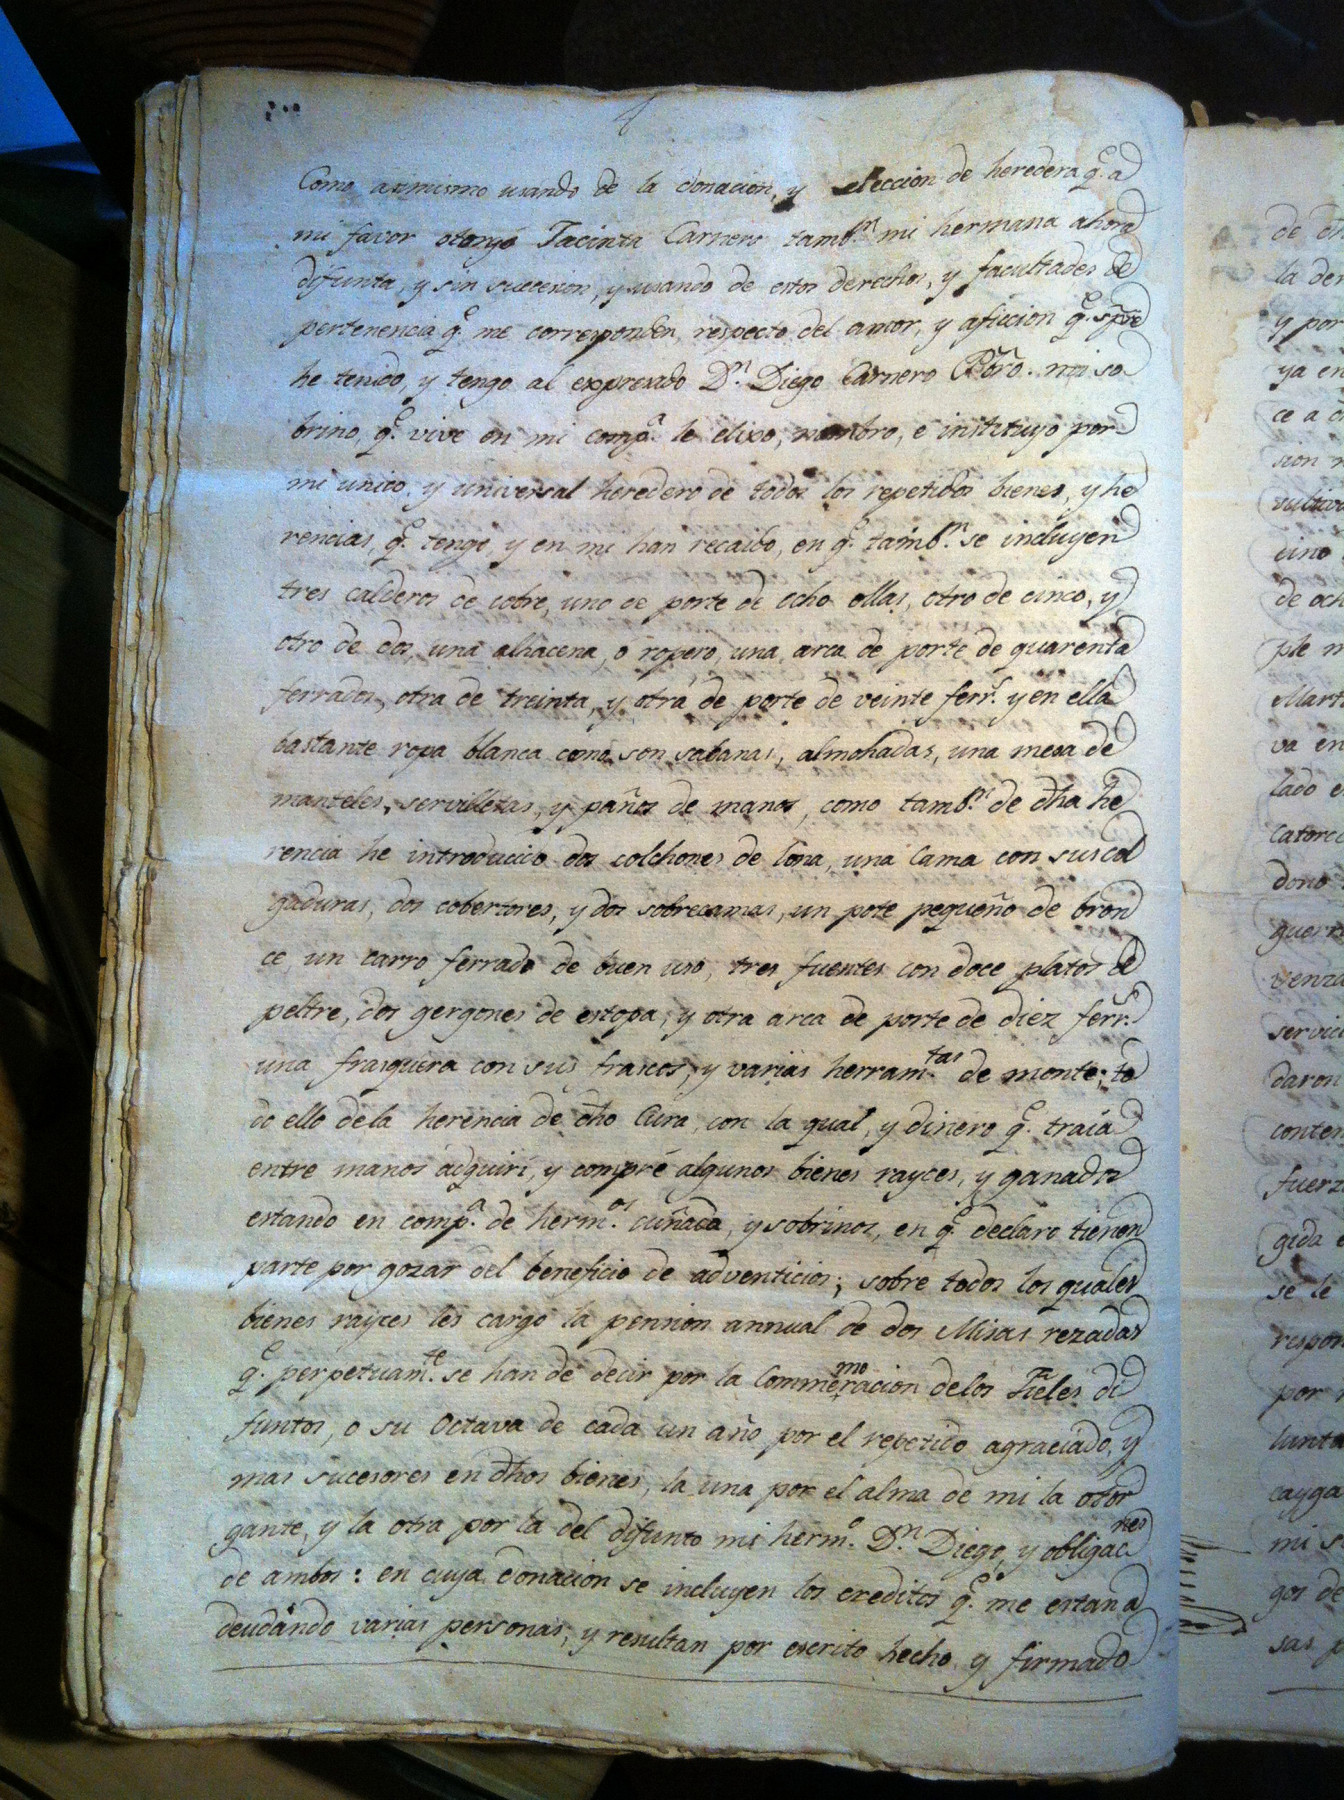 Como asimismo usando de la donacion, y eleccion de heredera q.e a
mi favor otorgó Jacinta Carnero tamb.n mi hermana ahora
difunta, y sin succesion, y usando de estos derechos, y facultades de
pertenencia q.e me corresponden, respecto del amor, y aficcion q.e sp̃re
he tenido, y tengo al expresado D.n Diego Carnero Pbr̃o. mi so
brino, q.e vive en mi comp.a le elixo, nombro, e instituyo por
mi unico, y universal heredero de todos los repetidos bienes, y he
rencias, q.e tengo, y en mi han recaido, en q.e tamb.n se incluyen
tres calderos de cobre, uno de porte de ocho ollas, otro de cinco, y
otro de dos, una alhacena, o ropero, una arca de porte de quarenta
ferrados, otra de treinta, y otra de porte de veinte ferr.s y en ella
bastante ropa blanca como son sabanas, almohadas, una mesa de
manteles, servilletas, y paños de manos, como tamb.n de dh̃a he
rencia he introducido dos colchones de lona, una Cama con sus col
gaduras, dos cobertores, y dos sobrecamas, un pote pequeño de bron
ce un carro ferrado de buen uso, tres fuentes con doce platos de
peltre, dos gergones de estopa, y otra arca de porte de diez ferr.s
una frasquera con sus frascos, y varias herram.tas de monte, to
do ello de la herencia de dh̃o Cura, con la qual, y dinero q.e traia
entre manos adquirí, y compré algunos bienes rayces, y ganados
estando en comp.a de herm.os cuñada, y sobrinos, en q.e declaro tienen
parte por gozar del beneficio de adventicios; sobre todos los quales
bienes rayces les cargo la pension annual de dos Misas rezadas
q.e perpetuam.te se han de decir por la Commemoracion de los Fieles di
funtos, o su Octava de cada un año por el repetido agraciado, y
mas sucesores en dh̃os bienes, la una por el alma de mi la otor
gante, y la otra por la del difunto mi herm.o D.n Diego, y obligac.nes
de ambos: en cuya donacion se incluyen los creditos q.e me estan a
deudando varias personas, y resultan por escrito hecho y firmado